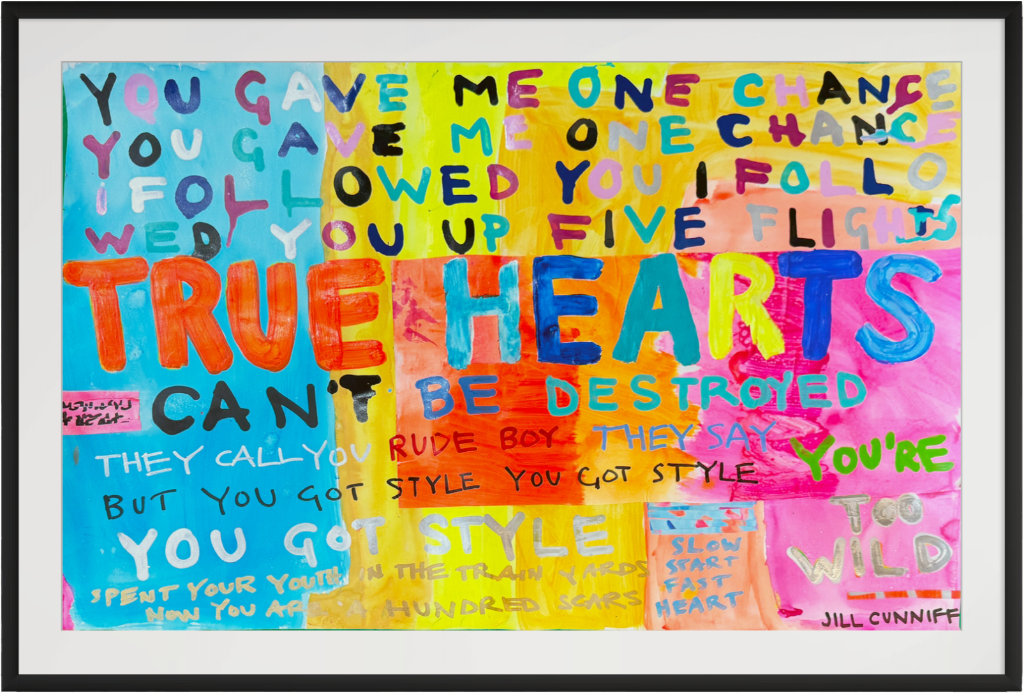 YOU GAVE ME ONE CHANCE
YOU GAVE ME ONE CHANCE
I FOLLOWED YOU I FOLLO
WED YOU UP FIVE FLIGHTS
TRUE HEARTS
CAN'T BE DESTROYED
THEY CALL YOU RUDE BOY THEY SAY
YOU'RE
BUT YOU GOT STYLE YOU GOT STYLE
TOO
YOU GOT STYLE
WILD
SPENT YOUR YOUTH IN THE TRAIN YARDS
NOW YOU ARE A HUNDRED SCARS
SLOW
START
FAST
HEART
JILL CUNNIFF